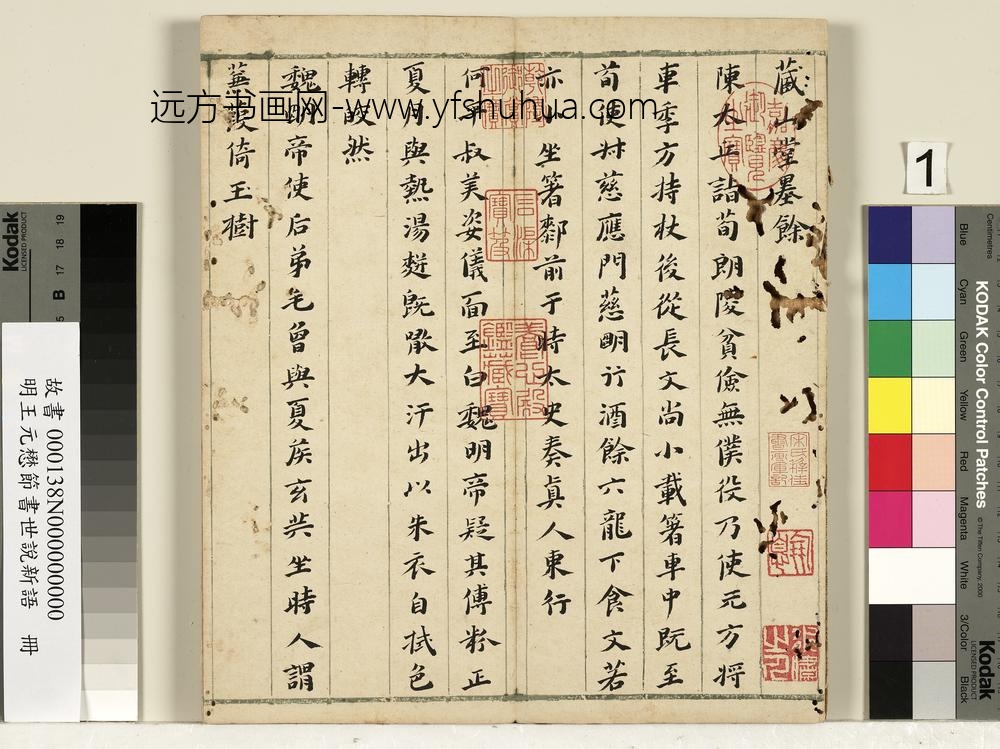 藏山堂墨餘
陳太丘詣荀朗陵貧儉無僕役乃使元方將
車季方持杖後從長文尚小載箸車中既至
荀使叔慈應門慈明行酒餘六龍下食文若
亦小坐箸郄前于時太史奏真人東行
何平叔美姿儀面至白魏明帝疑其傅粉正
夏月與熱湯麪既噉大汗出以朱衣自拭色
轉皎然
魏明帝使后弟毛曾與夏侯玄共坐時人謂
蒹葭倚玉樹
远方书画网-www.yfshuhua.com
故書 000138N000000000
明王元懋節書世說新語 冊
1
Kodak
LICENSED PRODUCT
B 17 18 19
KODAK Color Control Patches
© The Tiffen Company, 2000
Centimetres
Blue
Cyan
Green
Yellow
Red
Magenta
White
3/Color
Black
Kodak
LICENSED PRODUCT